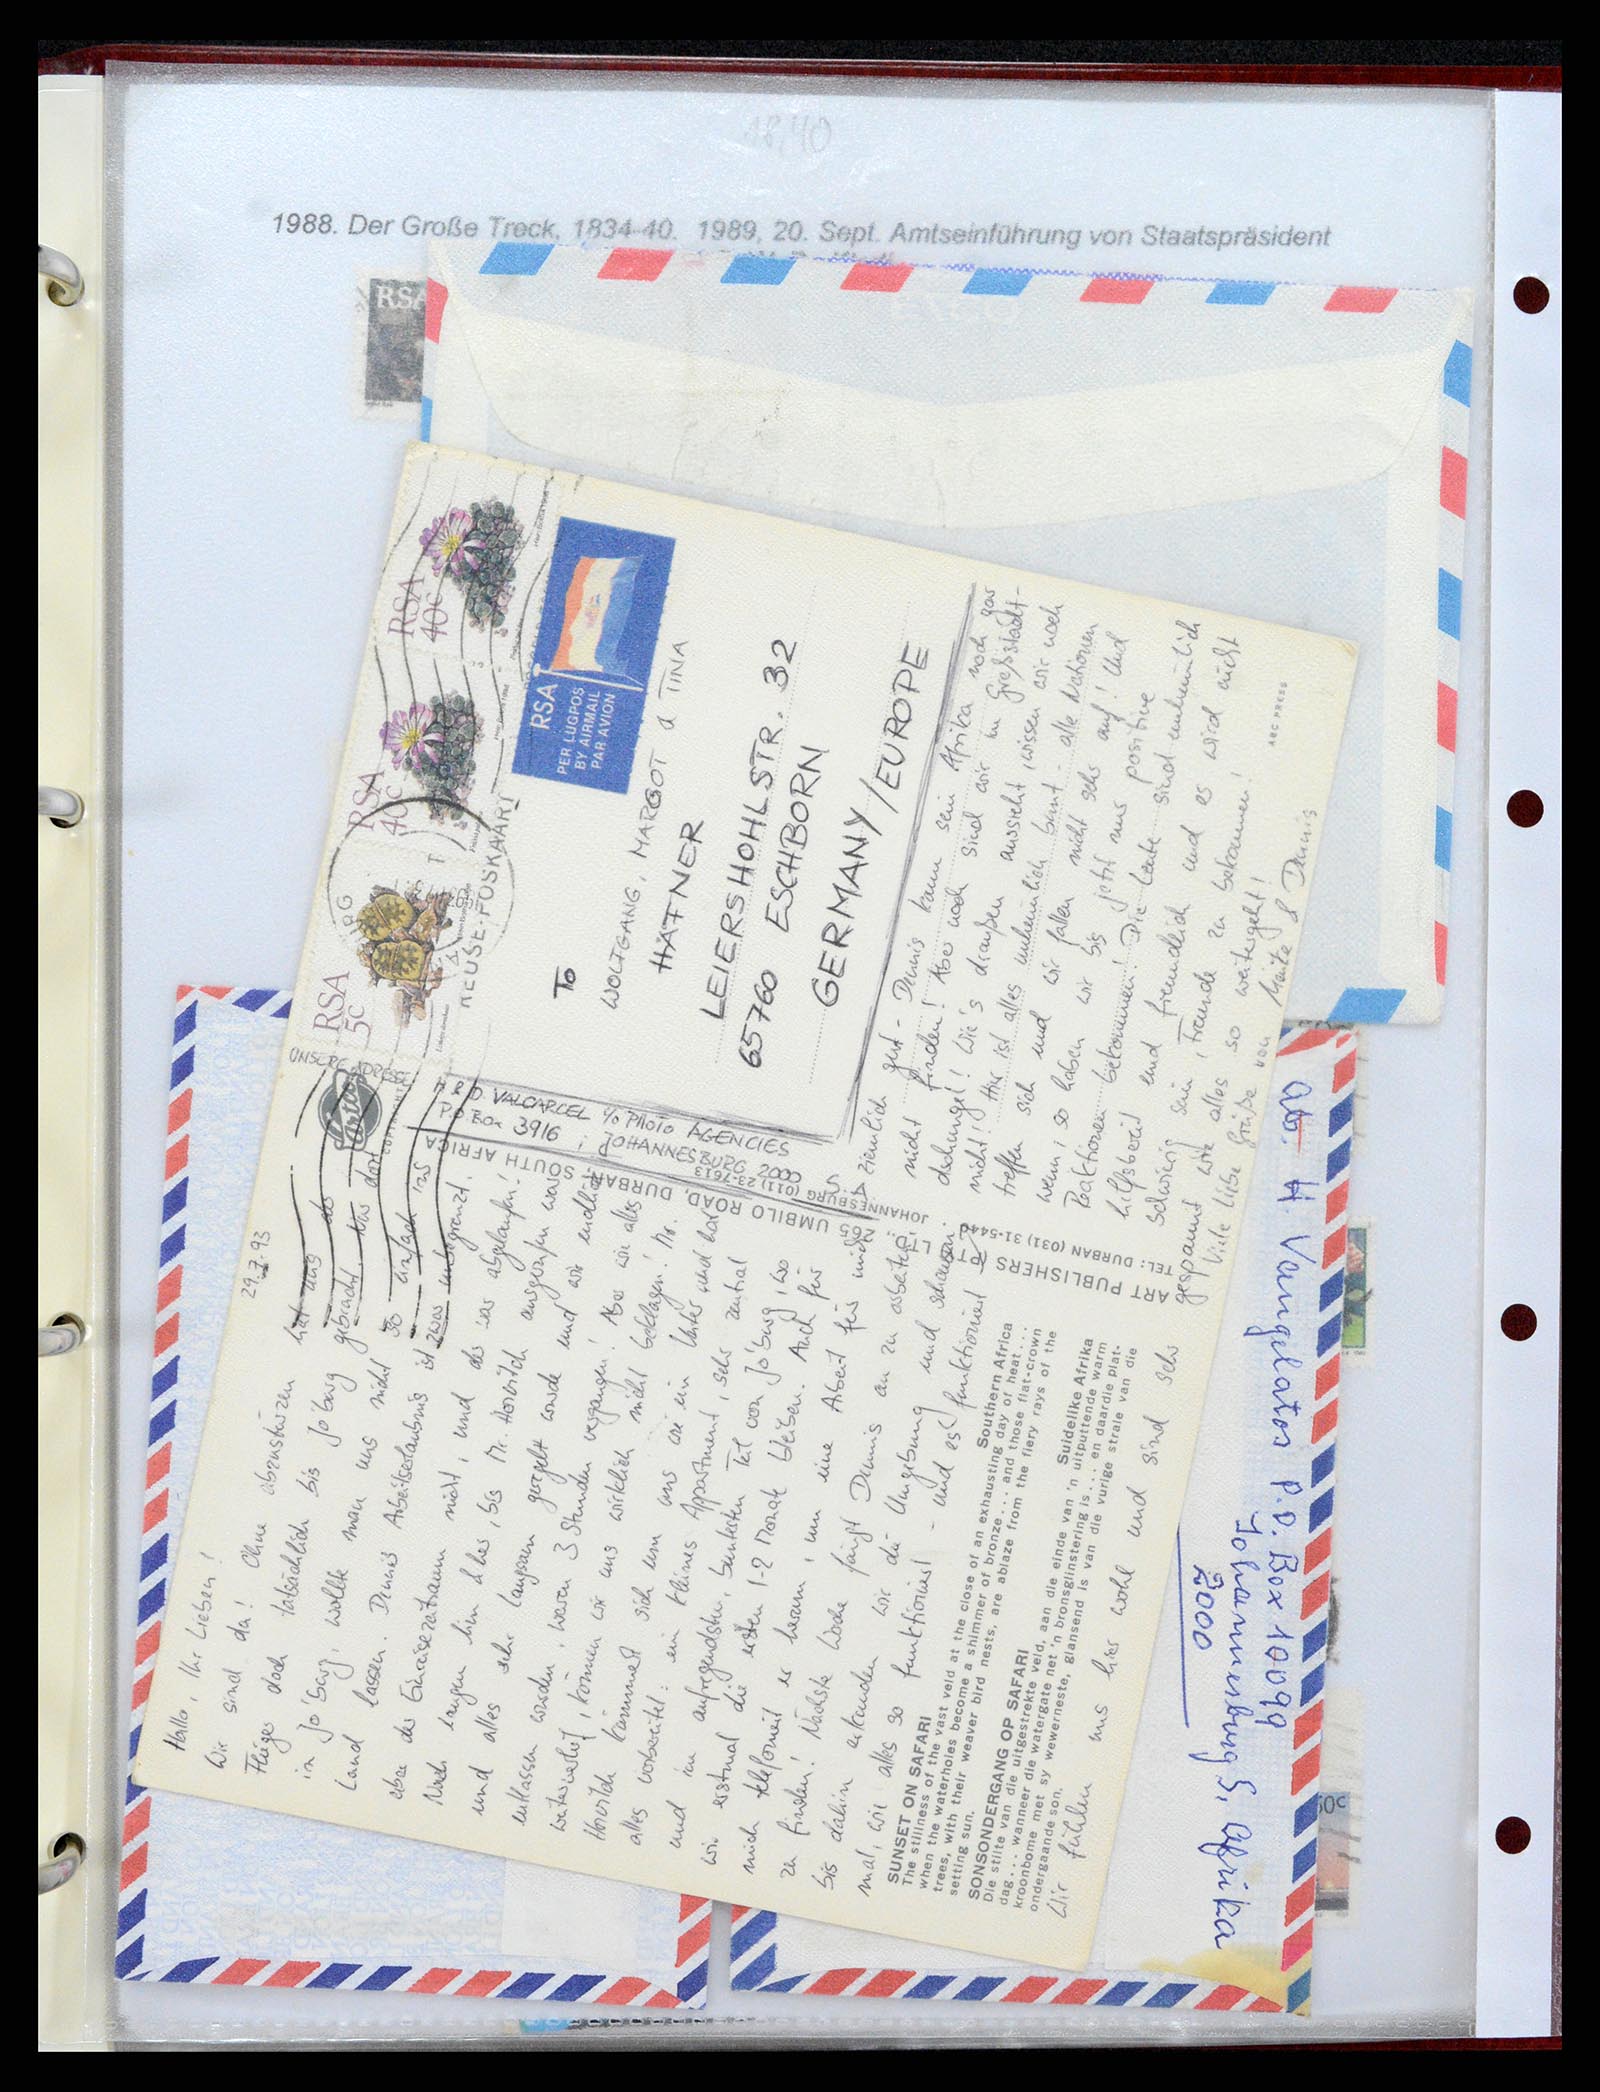 18,40
1988. Der Große Treck, 1834-40. 1989, 20. Sept. Amtseinführung von Staatspräsident
RSA
RSA
40c
RSA
40c
RSA
5c
RSA
PER LUGPOS
BY AIRMAIL
PAR AVION
KEUSE-POSKAART
To
WOLFGANG, MARGOT & TINA
HÄFNER
LEIERSHOHLSTR. 32
65760 ESCHBORN
GERMANY/EUROPE
UNSERE ADRESSE
D. VALCARCEL c/o PHOTO AGENCIES
P.O BOX 3916
JOHANNESBURG 2000
ART PUBLISHERS (PTY) LTD. 265 UMBILO ROAD, DURBAN, SOUTH AFRICA
TEL: DURBAN (031) 31-5440. JOHANNESBURG (011) 23-7613
29.7.93
Hallo, Ihr Lieben!
Wir sind da! Ohne abzustürzen hat uns
Flieger doch tatsächlich bis Jo'burg gebracht. Nur dort
in Jo'burg, wollte man uns nicht so einfach ins
Land lassen. Dennis Arbeitserlaubnis ist zwar unbegrenzt,
aber der Einreisezeitraum nicht, und der war abgelaufen!
Nach langem hin & her, bis Mr. Horvitch ausgerufen war
und alles sehr langsam geregelt wurde und wir endlich
entlassen wurden, waren 3 Stunden vergangen! Aber wie alles
weiterverlief, können wir uns wirklich nicht beklagen! Mr.
Horvitch kümmert sich um uns wie ein Vater und hat
alles vorbereitet: ein kleines Appartment, sehr zentral
und im aufregendsten, buntesten Teil von Jo'burg, wo
wir erstmal die ersten 1-2 Monate bleiben. Auch für
mich telefoniert er herum, um eine Arbeit für mich
zu finden! Nächste Woche fängt Dennis an zu arbeiten,
bis dahin erkunden wir die Umgebung und schauen
mal, wie alles so funktioniert - und es funktioniert
SUNSET ON SAFARI Southern Africa
The stillness of the vast veld at the close of an exhausting day of heat...
when the waterholes become a shimmer of bronze... and those flat-crown
trees, with their weaver bird nests, are ablaze from the fiery rays of the
setting sun.
SONSONDERGANG OP SAFARI Suidelike Afrika
Die stilte van die uitgestrekte veld, aan die einde van 'n uitputtende warm
dag... wanneer die watergate net 'n bronsglinstering is... en daardie plat-
kroonbome met sy wewerneste, glansend is van die vurige strale van die
ondergaande son.
Wir fühlen uns hier wohl und sind sehr
ziemlich gut - Dennis kann sein Afrika noch gar
nicht finden! Aber noch sind wir im Großstadt-
dschungel! Wie's draußen aussieht, wissen wir noch
nicht! Hier ist alles unheimlich bunt - alle Nationen
treffen sich und wir fallen nicht sehr auf! Und
wenn, so haben wir bis jetzt nur positive
Reaktionen bekommen! Die Leute sind unheimlich
hilfsbereit und freundlich und es wird nicht
schwierig sein, Freunde zu bekommen!
gespannt wie alles so weitergeht!
Viele liebe Grüße von & Dennis
ABC PRESS
Abs. H. Vangelatos P.O. Box 10099
Johannesburg S. Afrika
2000
50c